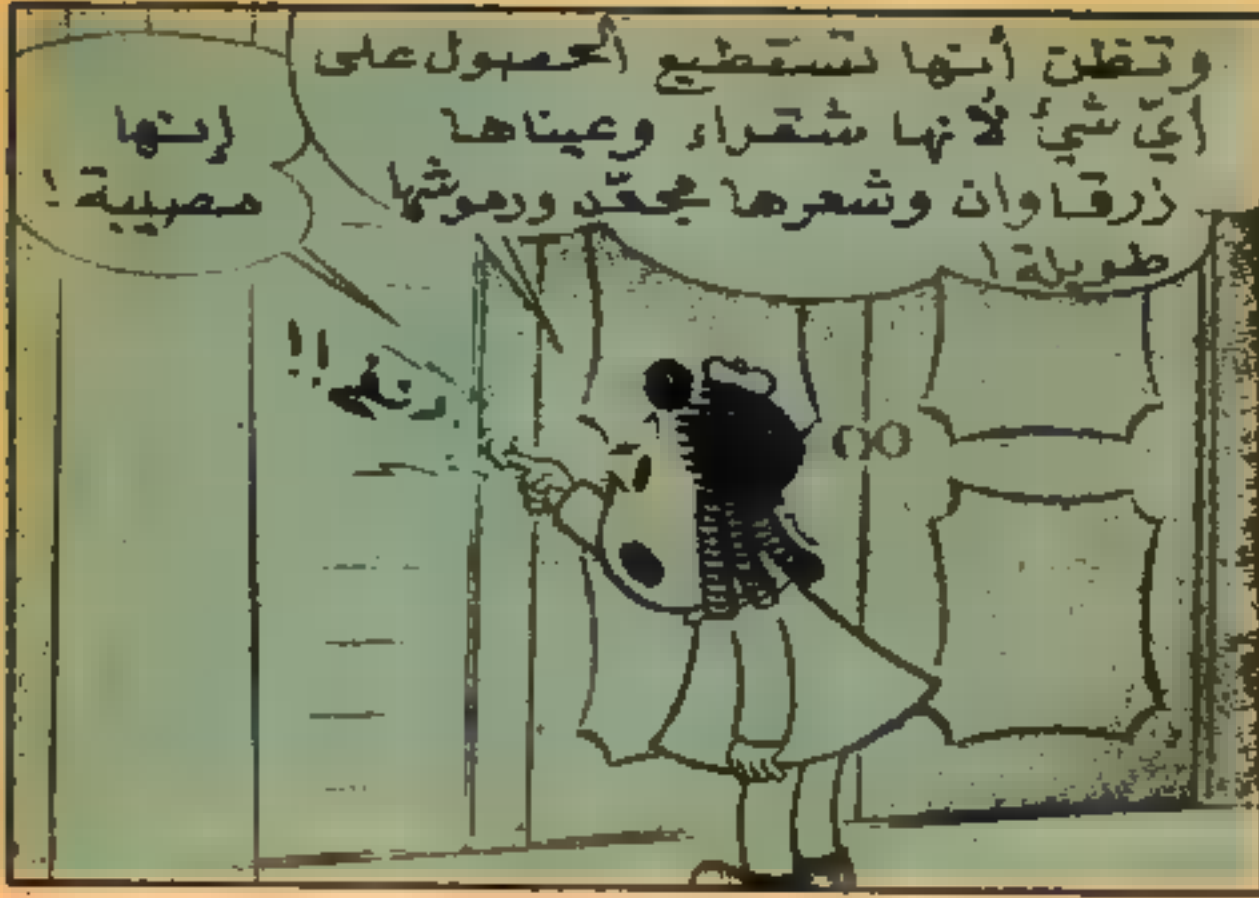 وتظن أنها تستطيع الحصول على
أيّ شيئ لأنها شقراء وعيناها
زرقاوان وشعرها مجعّد ورموشها
طويلة!
إنها
مصيبة!
رنغ!!